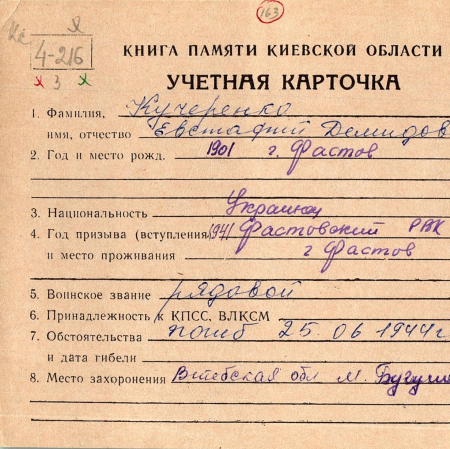 163
4-216
3
КНИГА ПАМЯТИ КИЕВСКОЙ ОБЛАСТИ
УЧЕТНАЯ КАРТОЧКА
1. Фамилия, Кучеренко
имя, отчество Евстафий Демидов
2. Год и место рожд. 1901 г. Фастов
3. Национальность Украинец
4. Год призыва (вступления) 1941 Фастовский РВК
и место проживания г Фастов
5. Воинское звание рядовой
6. Принадлежность к КПСС, ВЛКСМ
7. Обстоятельства погиб 25.06 1944г
и дата гибели
8. Место захоронения Витебская обл м.